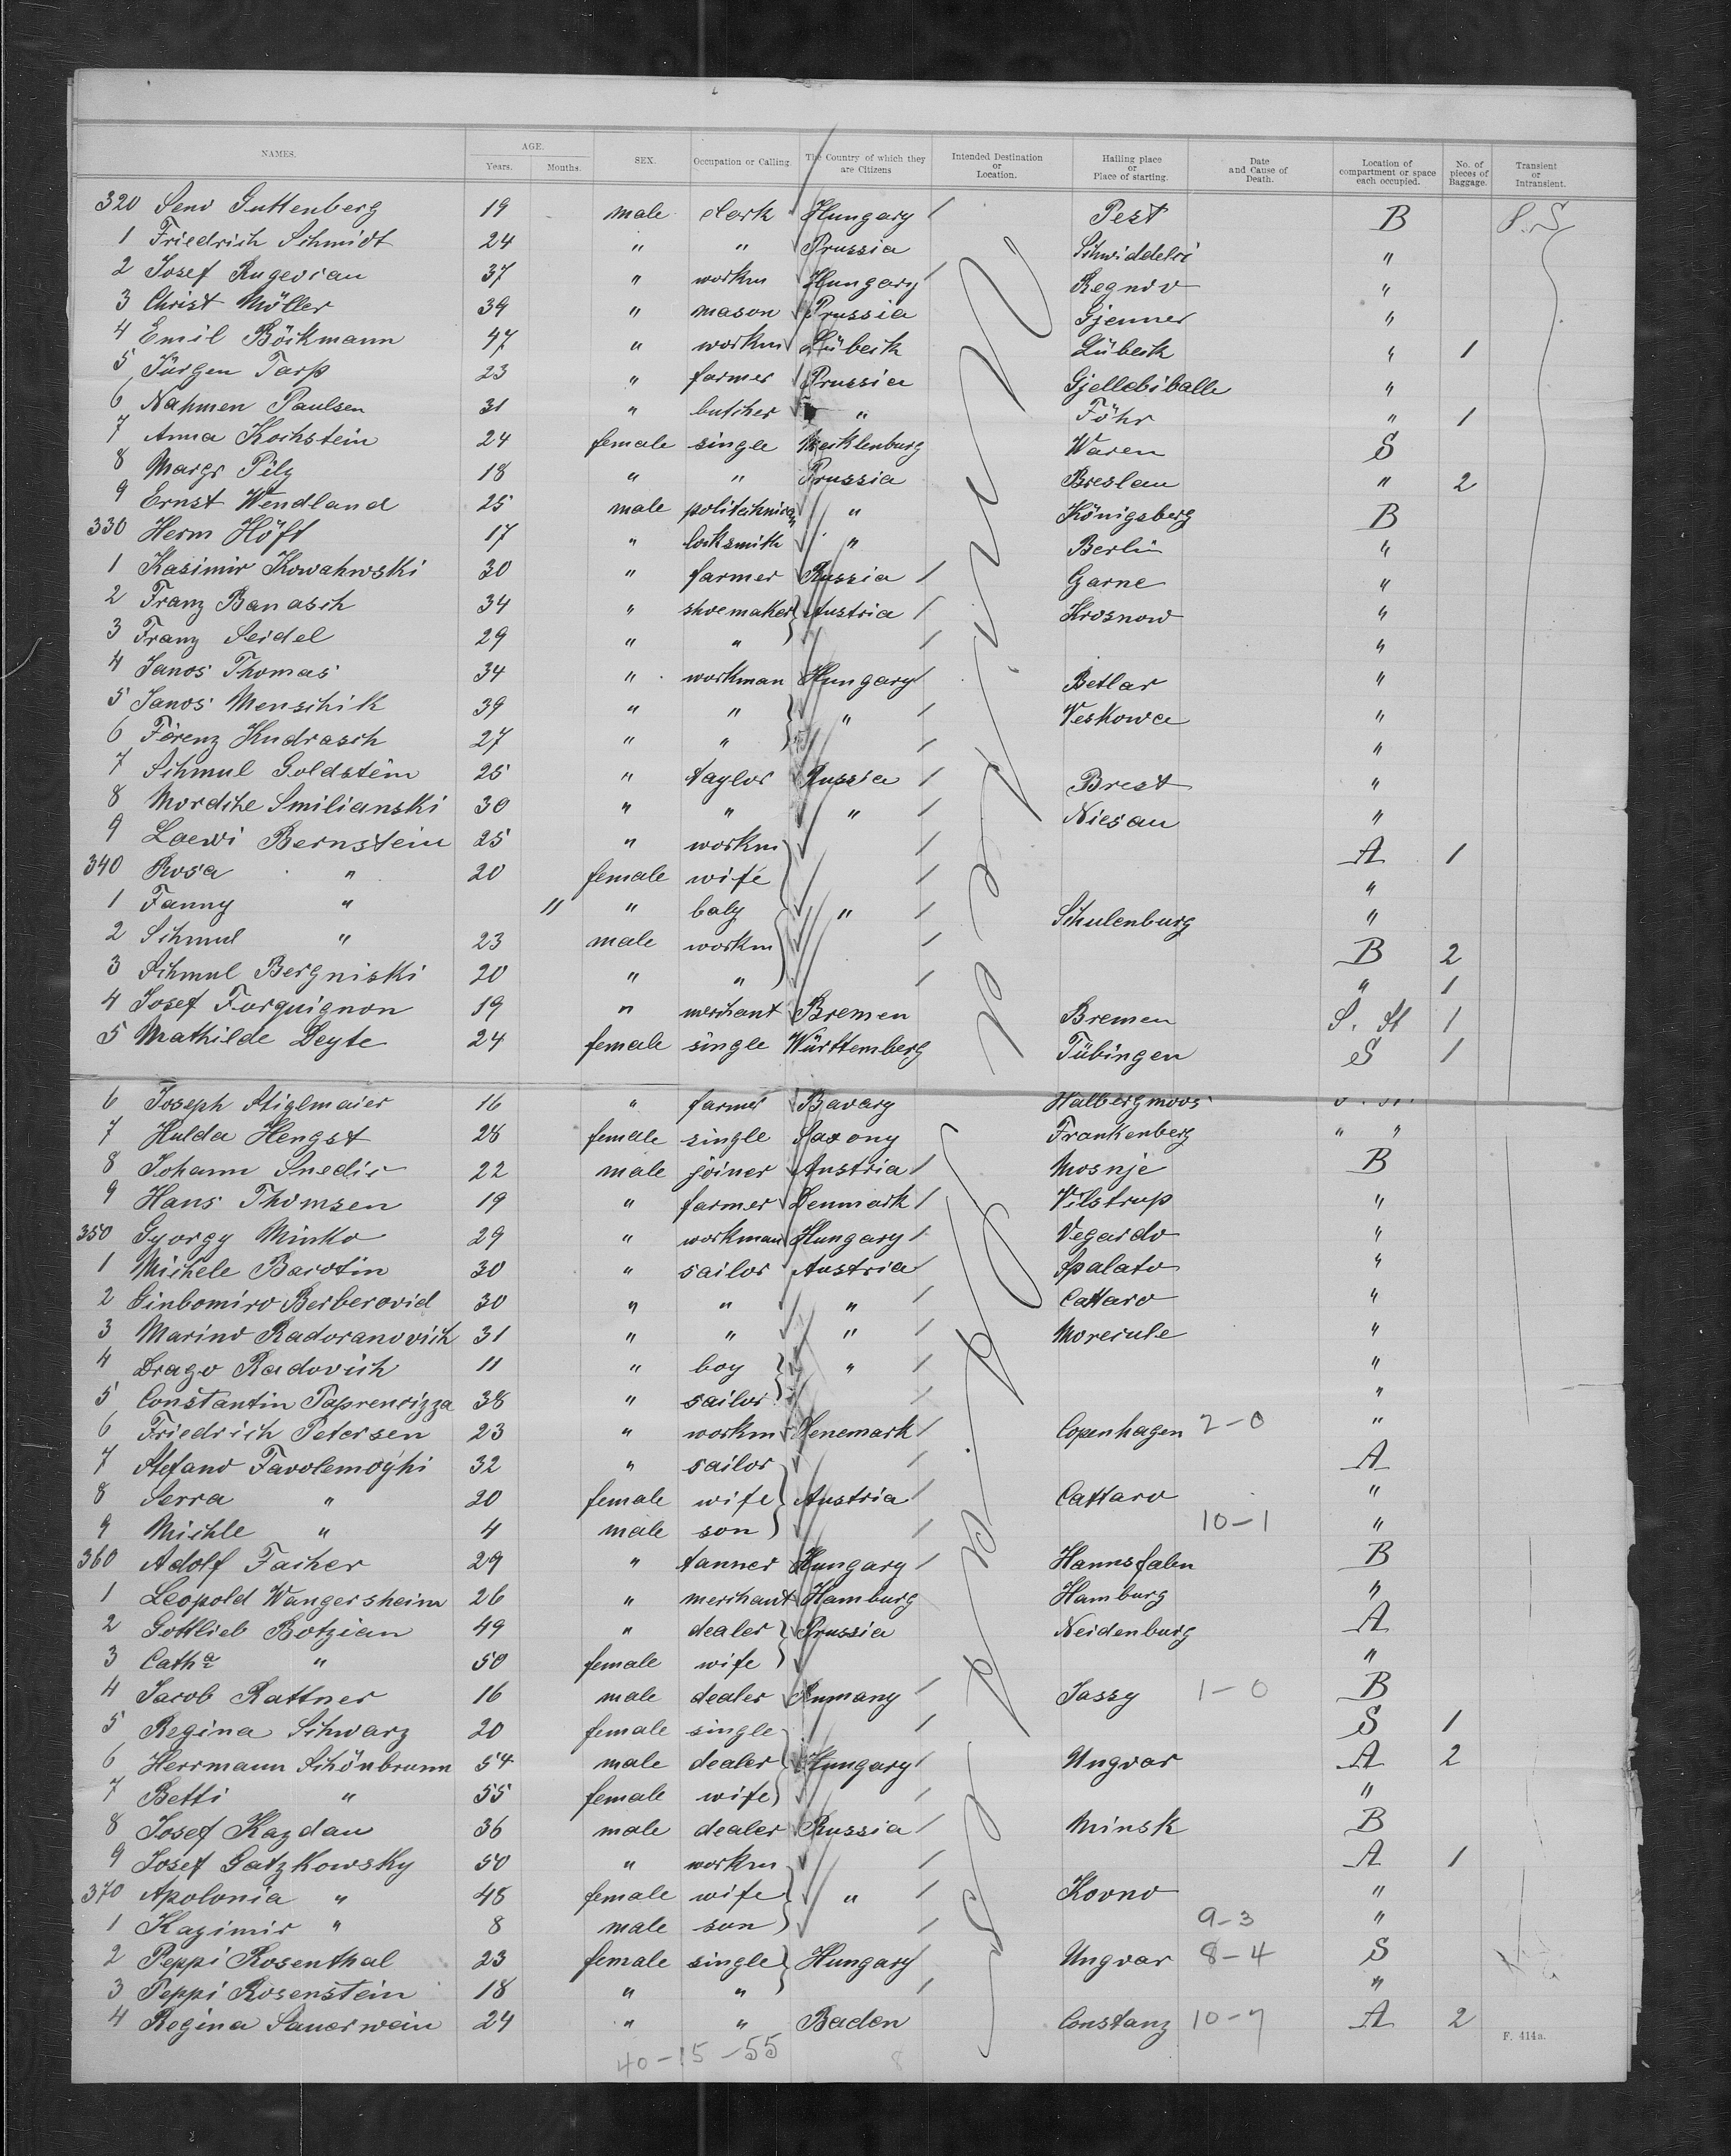 NAMES. AGE. Years. Months. SEX. Occupation or Calling. The Country of which they are Citizens Intended Destination or Location. Hailing place or Place of starting. Date and Cause of Death. Location of compartment or space each occupied. No. of pieces of Baggage. Transient or Intransient.
320 Guttenberg 19 male clerk Hungary / Pest B
1 Friedrich Schmidt 24 " " Prussia "
2 Josef Rugevian 37 " workm Hungary / "
3 Christ Möller 39 " mason Prussia Gjenner "
4 Emil Böckmann 47 " workm Lübeck Lübeck " 1
5 Jürgen Tarp 23 " farmer Prussia "
6 Nahmen Paulsen 31 " butcher " Föhr " 1
7 Anna Kochstein 24 female single Mecklenburg Waren S
8 Margr Pilz 18 " " Prussia Breslau " 2
9 Ernst Wendland 25 male " Königsberg B
330 Herm Höft 17 " locksmith " Berlin "
1 Kasimir 30 " farmer Russia / Garne "
2 Franz Banasch 34 " shoemaker Austria / Krosnow "
3 Franz Seidel 29 " " / "
4 Janos Thomas 34 " workman Hungary / Betlar "
5 Janos Menschik 39 " " " / Veskowa "
6 Ferenz Kudrasch 27 " " / "
7 Schmul Goldstein 25 " taylor Russia / Brest "
8 Mordche Smilianski 30 " " " / Niesau "
9 Loewi Bernstein 25 " workm / A 1
340 Rosa " 20 female wife / "
1 Fanny " 11 " baby " / Schulenburg "
2 Schmul " 23 male workm / B 2
3 Schmul Bergniski 20 " " / " 1
4 Josef Forquignon 19 " merchant Bremen Bremen S. St 1
5 Mathilde Deyle 24 female single Württemberg Tübingen S 1
6 Joseph Stiglmaier 16 " farmer Bavary Halbergmoos
7 Hulda Hengst 28 female single Saxony Frankenberg " "
8 Johann Snedic 22 male joiner Austria / Mosnje B
9 Hans Thomsen 19 " farmer Denmark / Vilstrup "
350 Gyorgy Minko 29 " workman Hungary / Vegardo "
1 Michele Barotin 30 " sailor Austria / Spalato "
2 Berberovid 30 " " " / Cattaro "
3 Marino Radoranovich 31 " " " / Morciule "
4 Drago Radovich 11 " boy " / "
5 Constantin 38 " sailor / "
6 Friedrich Petersen 23 " workm Denemark / Copenhagen 2-0 "
7 Stefano 32 " sailor / A
8 Serra " 20 female wife Austria / Cattaro "
9 Michle " 4 male son / 10-1 "
360 Adolf Facher 29 " tanner Hungary / Hannsfalen B
1 Leopold Wangersheim 26 " merchant Hamburg Hamburg "
2 Gottlieb Botzian 49 " dealer Prussia Neidenburg A
3 Catha " 50 female wife "
4 Jacob Rattner 16 male dealer Rumany / Jassy 1-0 B
5 Regina Schwarz 20 female single / S 1
6 Herrmann Schönbrunn 54 male dealer Hungary / Ungvar A 2
7 Betti " 55 female wife / "
8 Josef Kazdan 36 male dealer Russia / Minsk B
9 Josef Gatzkowsky 50 " workm / A 1
370 Apolonia " 45 female wife " / Kovno "
1 Kazimir " 8 male son / 9-3 "
2 Peppi Rosenthal 23 female single Hungary / Ungvar 8-4 S
3 Peppi Rosenstein 18 " " / "
4 Regina Sauerwein 24 " " Baden Constanz 10-7 A 2
40-15-55 8
F. 414a.